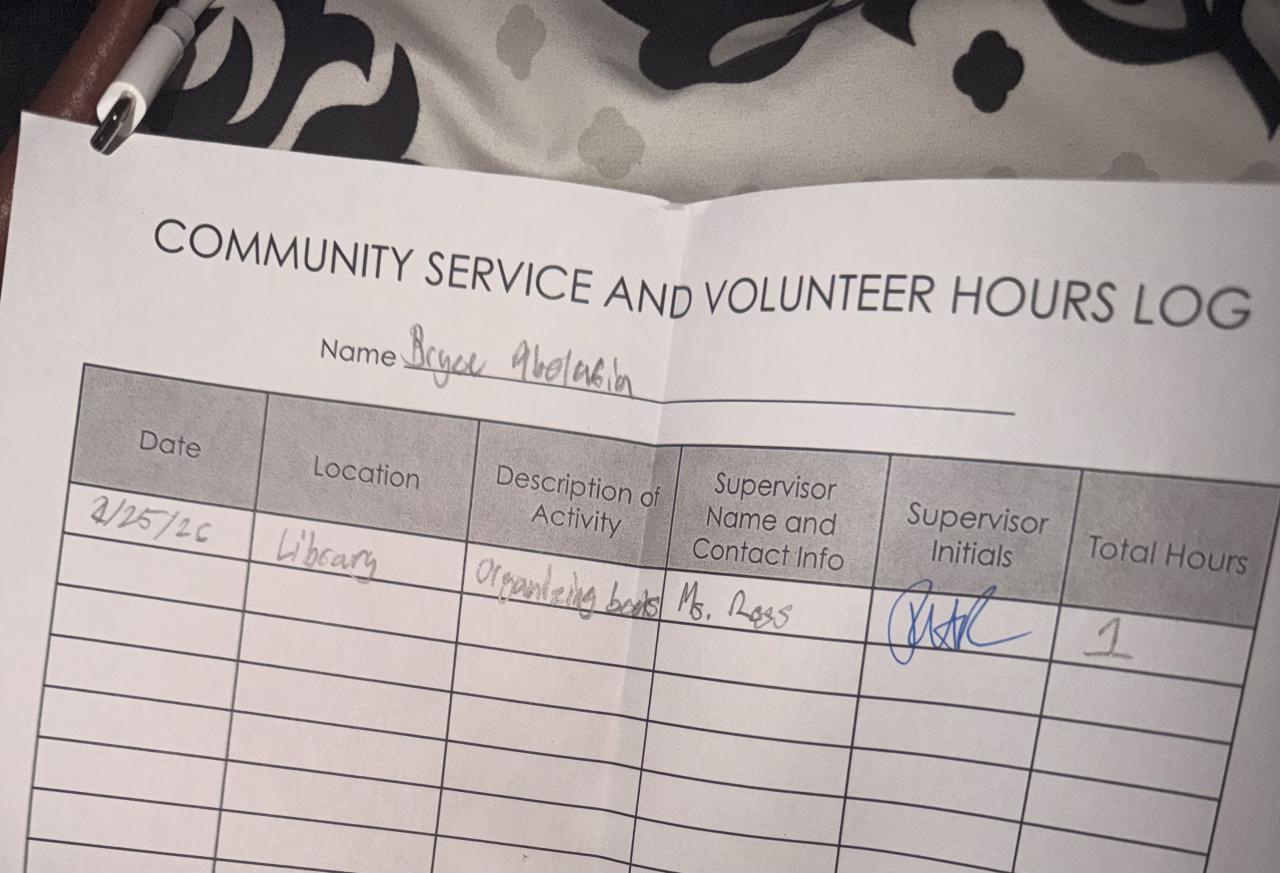 COMMUNITY SERVICE AND VOLUNTEER HOURS LOG
Name Bryce
Date Location Description of Activity Supervisor Name and Contact Info Supervisor Initials Total Hours
/25/26 Library Organizing books Ms. Ross 1